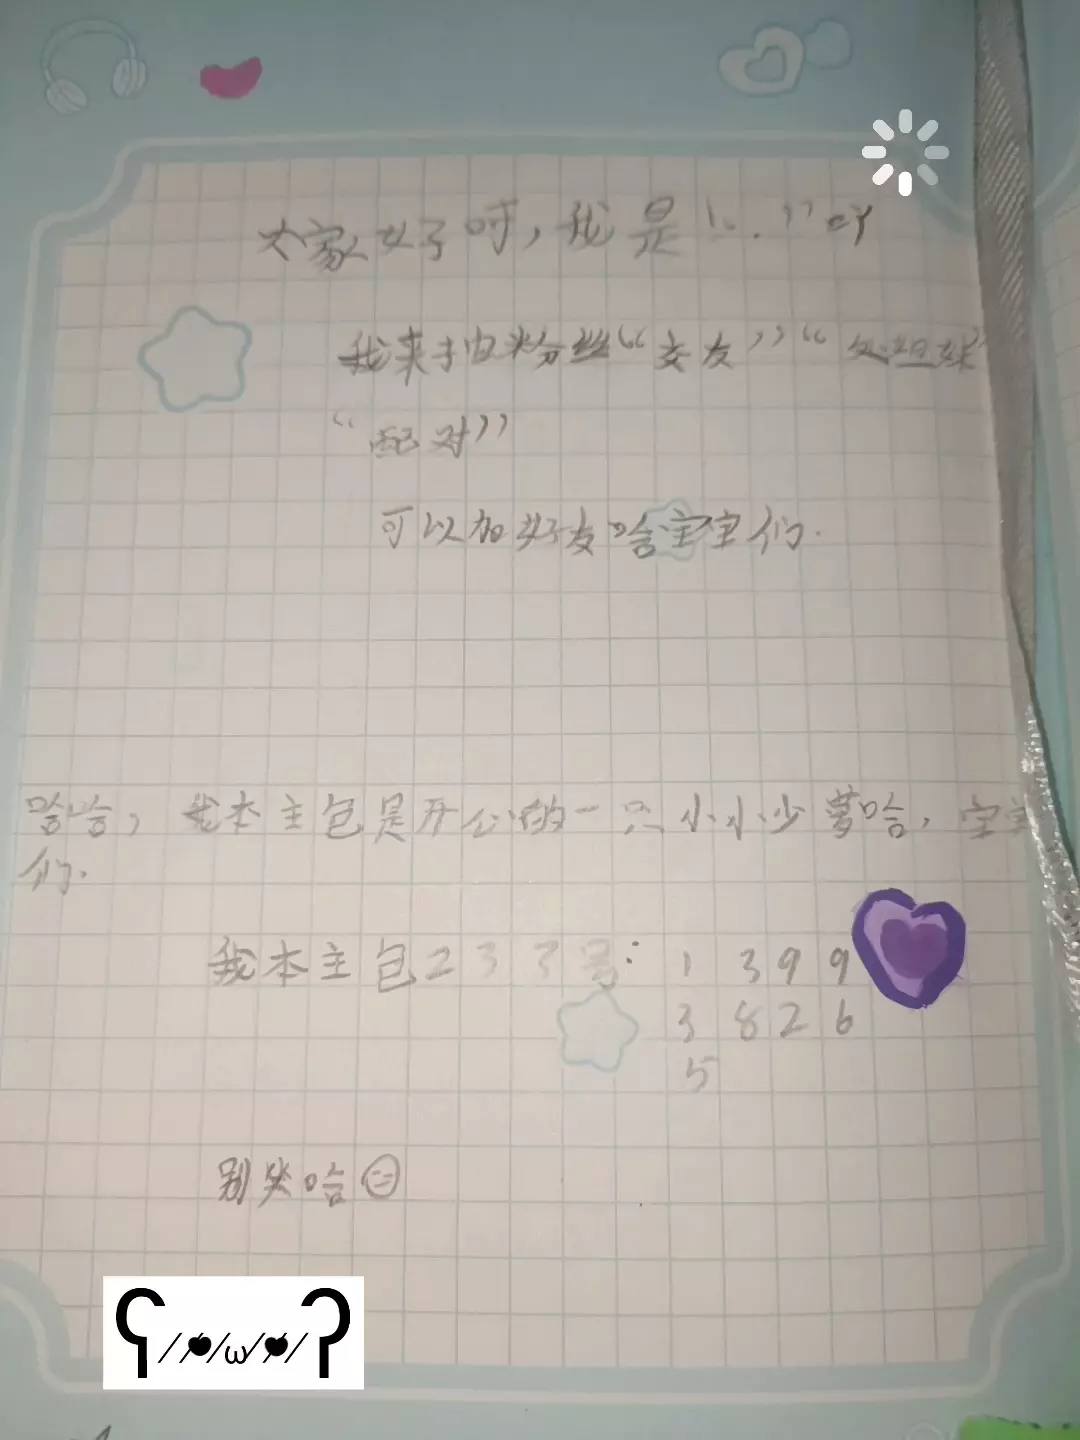 大家好呀，我是“..”吖
我来抽粉丝“交友”“处姐妹”
“配对”
可以加好友哈宝宝们.
哈哈，我本主包是开公的一只小小少萝哈，宝宝
们.
我本主包233号：1399
3826
5
别失哈
ʕ/♥/ω/♥/ʔ